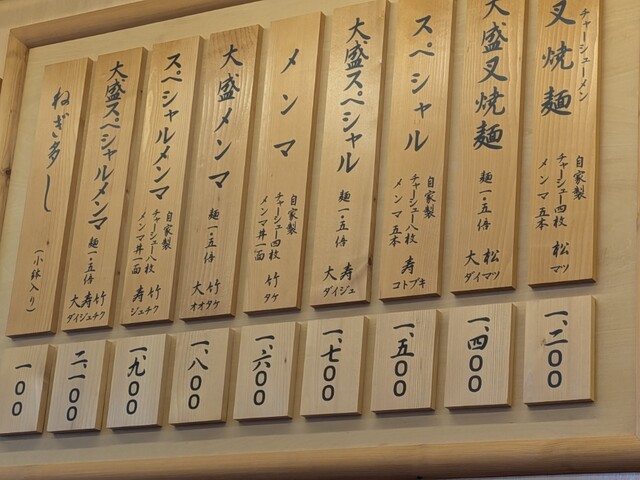 チャーシューメン
叉焼麺
自家製
チャーシュー四枚
メンマ五本
松
マツ
一、二〇〇
大盛叉焼麺
麺一・五倍
大松
ダイマツ
一、四〇〇
スペシャル
自家製
チャーシュー八枚
メンマ五本
寿
コトブキ
一、五〇〇
大盛スペシャル
麺一・五倍
大寿
ダイジュ
一、七〇〇
メンマ
自家製
チャーシュー四枚
メンマ丼一面
竹
タケ
一、六〇〇
大盛メンマ
麺一・五倍
大竹
オオタケ
一、八〇〇
スペシャルメンマ
自家製
チャーシュー八枚
メンマ丼一面
寿竹
ジュチク
一、九〇〇
大盛スペシャルメンマ
麺一・五倍
大寿竹
ダイジュチク
二、一〇〇
ねぎ多し
(小鉢入り)
一〇〇